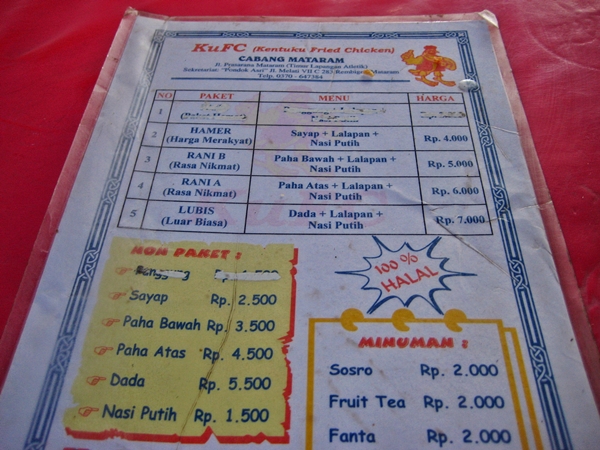 KuFC (Kentuku Fried Chicken)
CABANG MATARAM
Jl. Prasarana Mataram (Timur Lapangan Atletik)
Sekretariat: "Pondok Asri" Jl. Melati VII C 283 Rembiga Mataram
Telp. 0370 - 647384
NO PAKET MENU HARGA
1
2 HAMER (Harga Merakyat) Sayap + Lalapan + Nasi Putih Rp. 4.000
3 RANI B (Rasa Nikmat) Paha Bawah + Lalapan + Nasi Putih Rp. 5.000
4 RANI A (Rasa Nikmat) Paha Atas + Lalapan + Nasi Putih Rp. 6.000
5 LUBIS (Luar Biasa) Dada + Lalapan + Nasi Putih Rp. 7.000
NON PAKET :
Sayap Rp. 2.500
Paha Bawah Rp. 3.500
Paha Atas Rp. 4.500
Dada Rp. 5.500
Nasi Putih Rp. 1.500
100 %
HALAL
MINUMAN :
Sosro Rp. 2.000
Fruit Tea Rp. 2.000
Fanta Rp. 2.000